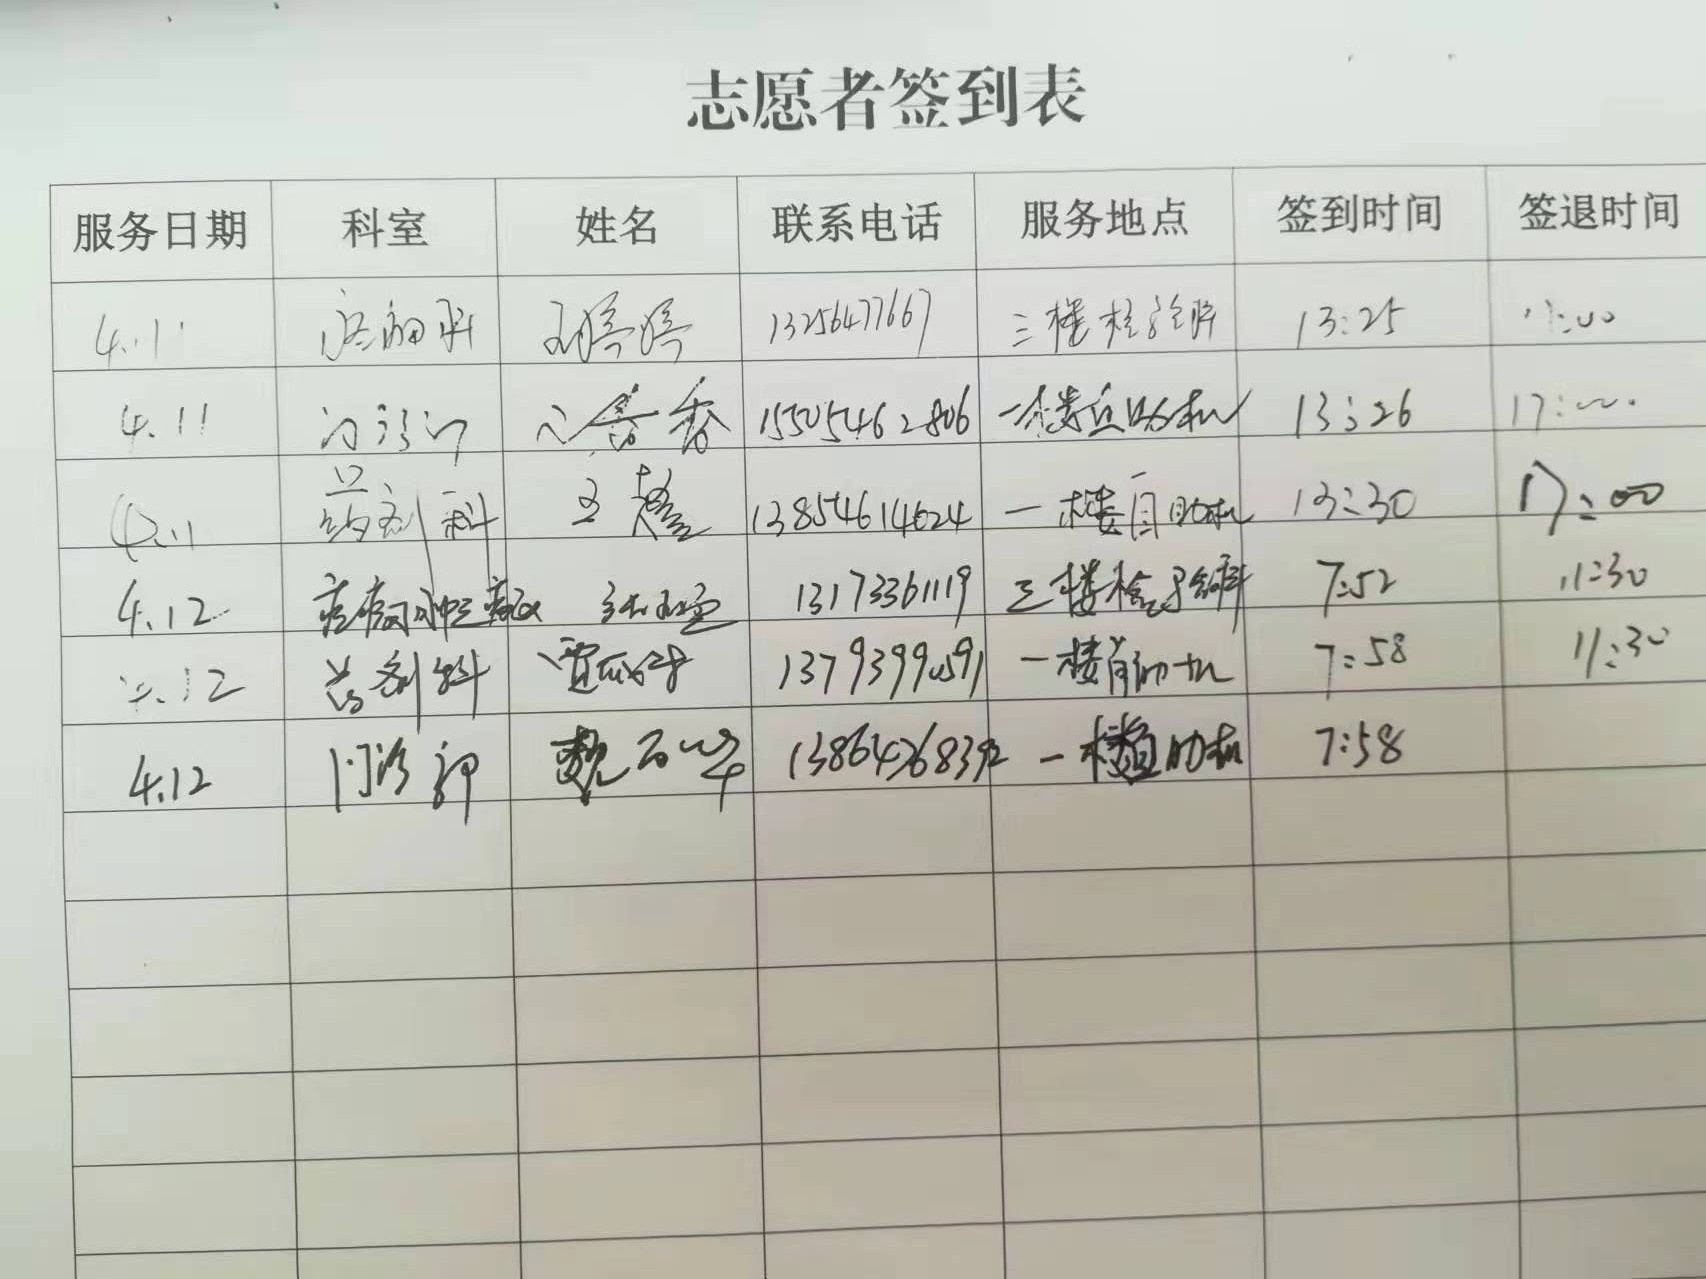 志愿者签到表
服务日期 科室 姓名 联系电话 服务地点 签到时间 签退时间
4.11 13256477667 三楼检验科 13:25
4.11 15505462806 一楼自助机 13:26 17:
4.11 药剂科 王 13854614624 一楼自助机 13:30 17:00
4.12 13173361119 三楼检验科 7:52 11:30
4.12 药剂科 贾 13793990591 一楼自助机 7:58 11:30
4.12 门诊部 魏 13864768392 一楼自助机 7:58